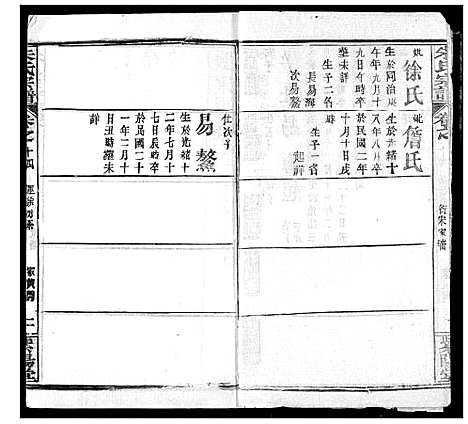 朱氏宗譜
卷之
妣徐氏
生於同治庚
午年九月十
九日午時卒
塋未詳
生子二名
長易海
次易鰲
妣詹氏
生於光緒十
八年八月卒
於民國二年
十月十日戌
生子一省
起詳
仕次子
易鰲
生於光緒十
二年七月十
七日辰時卒
於民國二十
一年二月十
日丑時塋未
詳
朱氏宗譜
卷之十四
紫陽堂